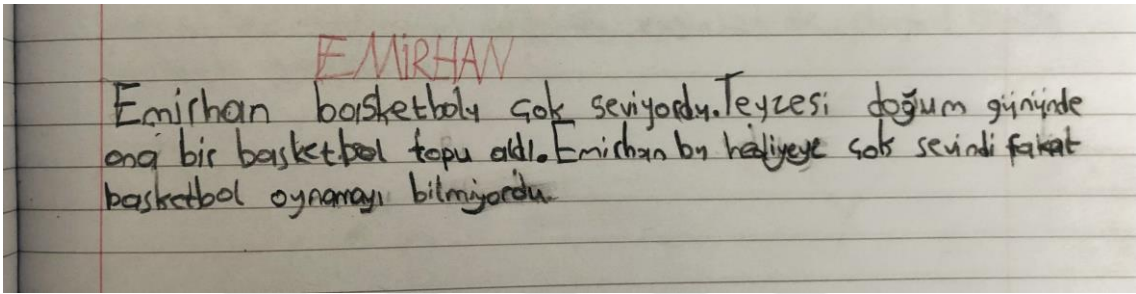 EMİRHAN
Emirhan basketbolu çok seviyordu. Teyzesi doğum gününde
ona bir basketbol topu aldı. Emirhan bu hediyeye çok sevindi fakat
basketbol oynamayı bilmiyordu.